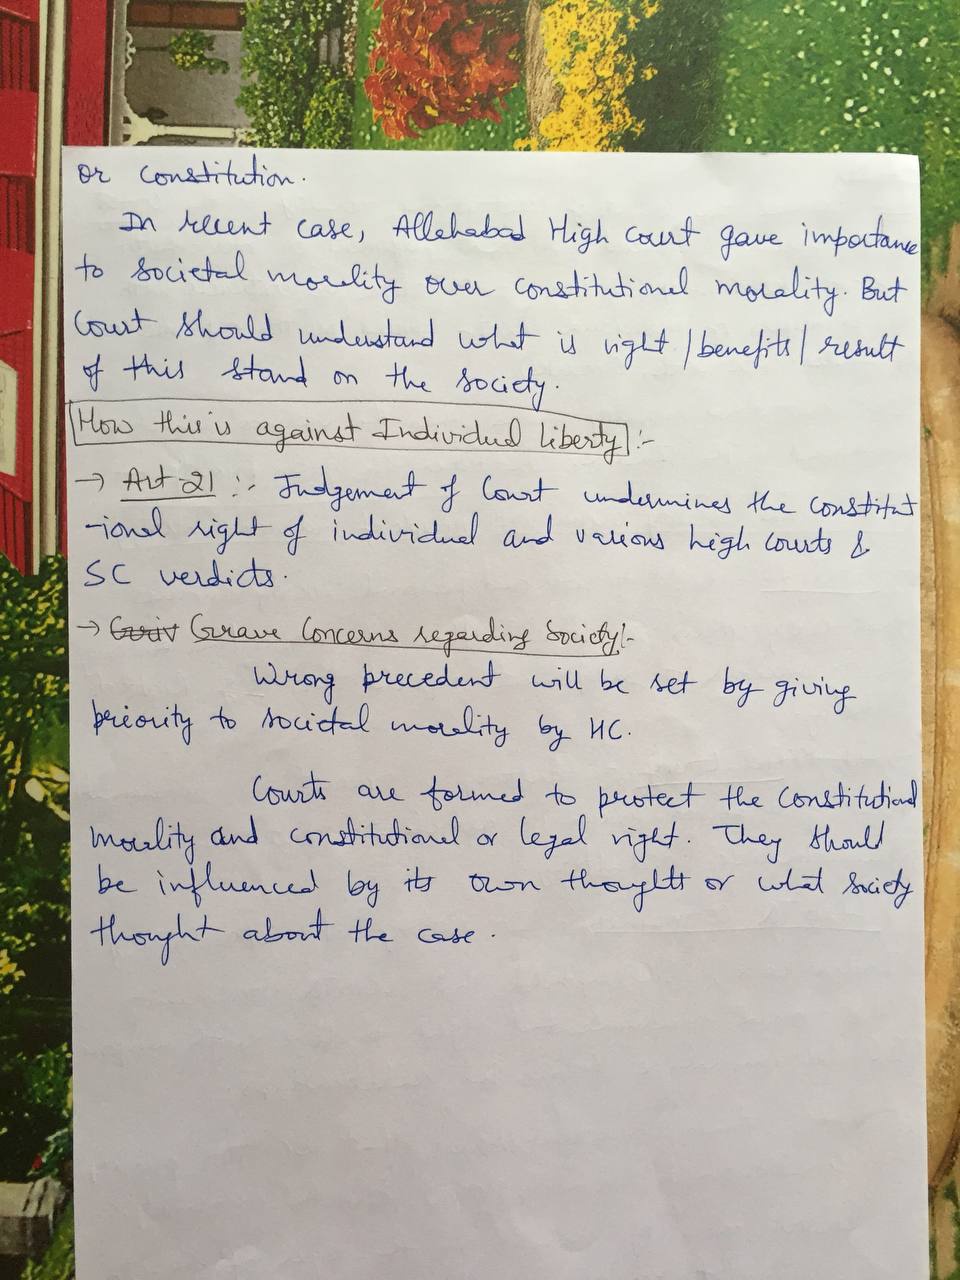 or constitution.
In recent case, Allehabad High court gave importance
to societal morality over constitutional morality. But
Court should understand what is right / benefits / result
of this stand on the society.
How this is against Individual liberty :-
→ Art-21 :- Judgement of Court undermines the constitut
-ional right of individual and various high courts &
SC verdicts.
→ Grave Concerns regarding Society :-
Wrong precedent will be set by giving
priority to societal morality by HC.
Courts are formed to protect the constitutional
morality and constitutional or legal right. They should
be influenced by its own thoughts or what society
thought about the case.